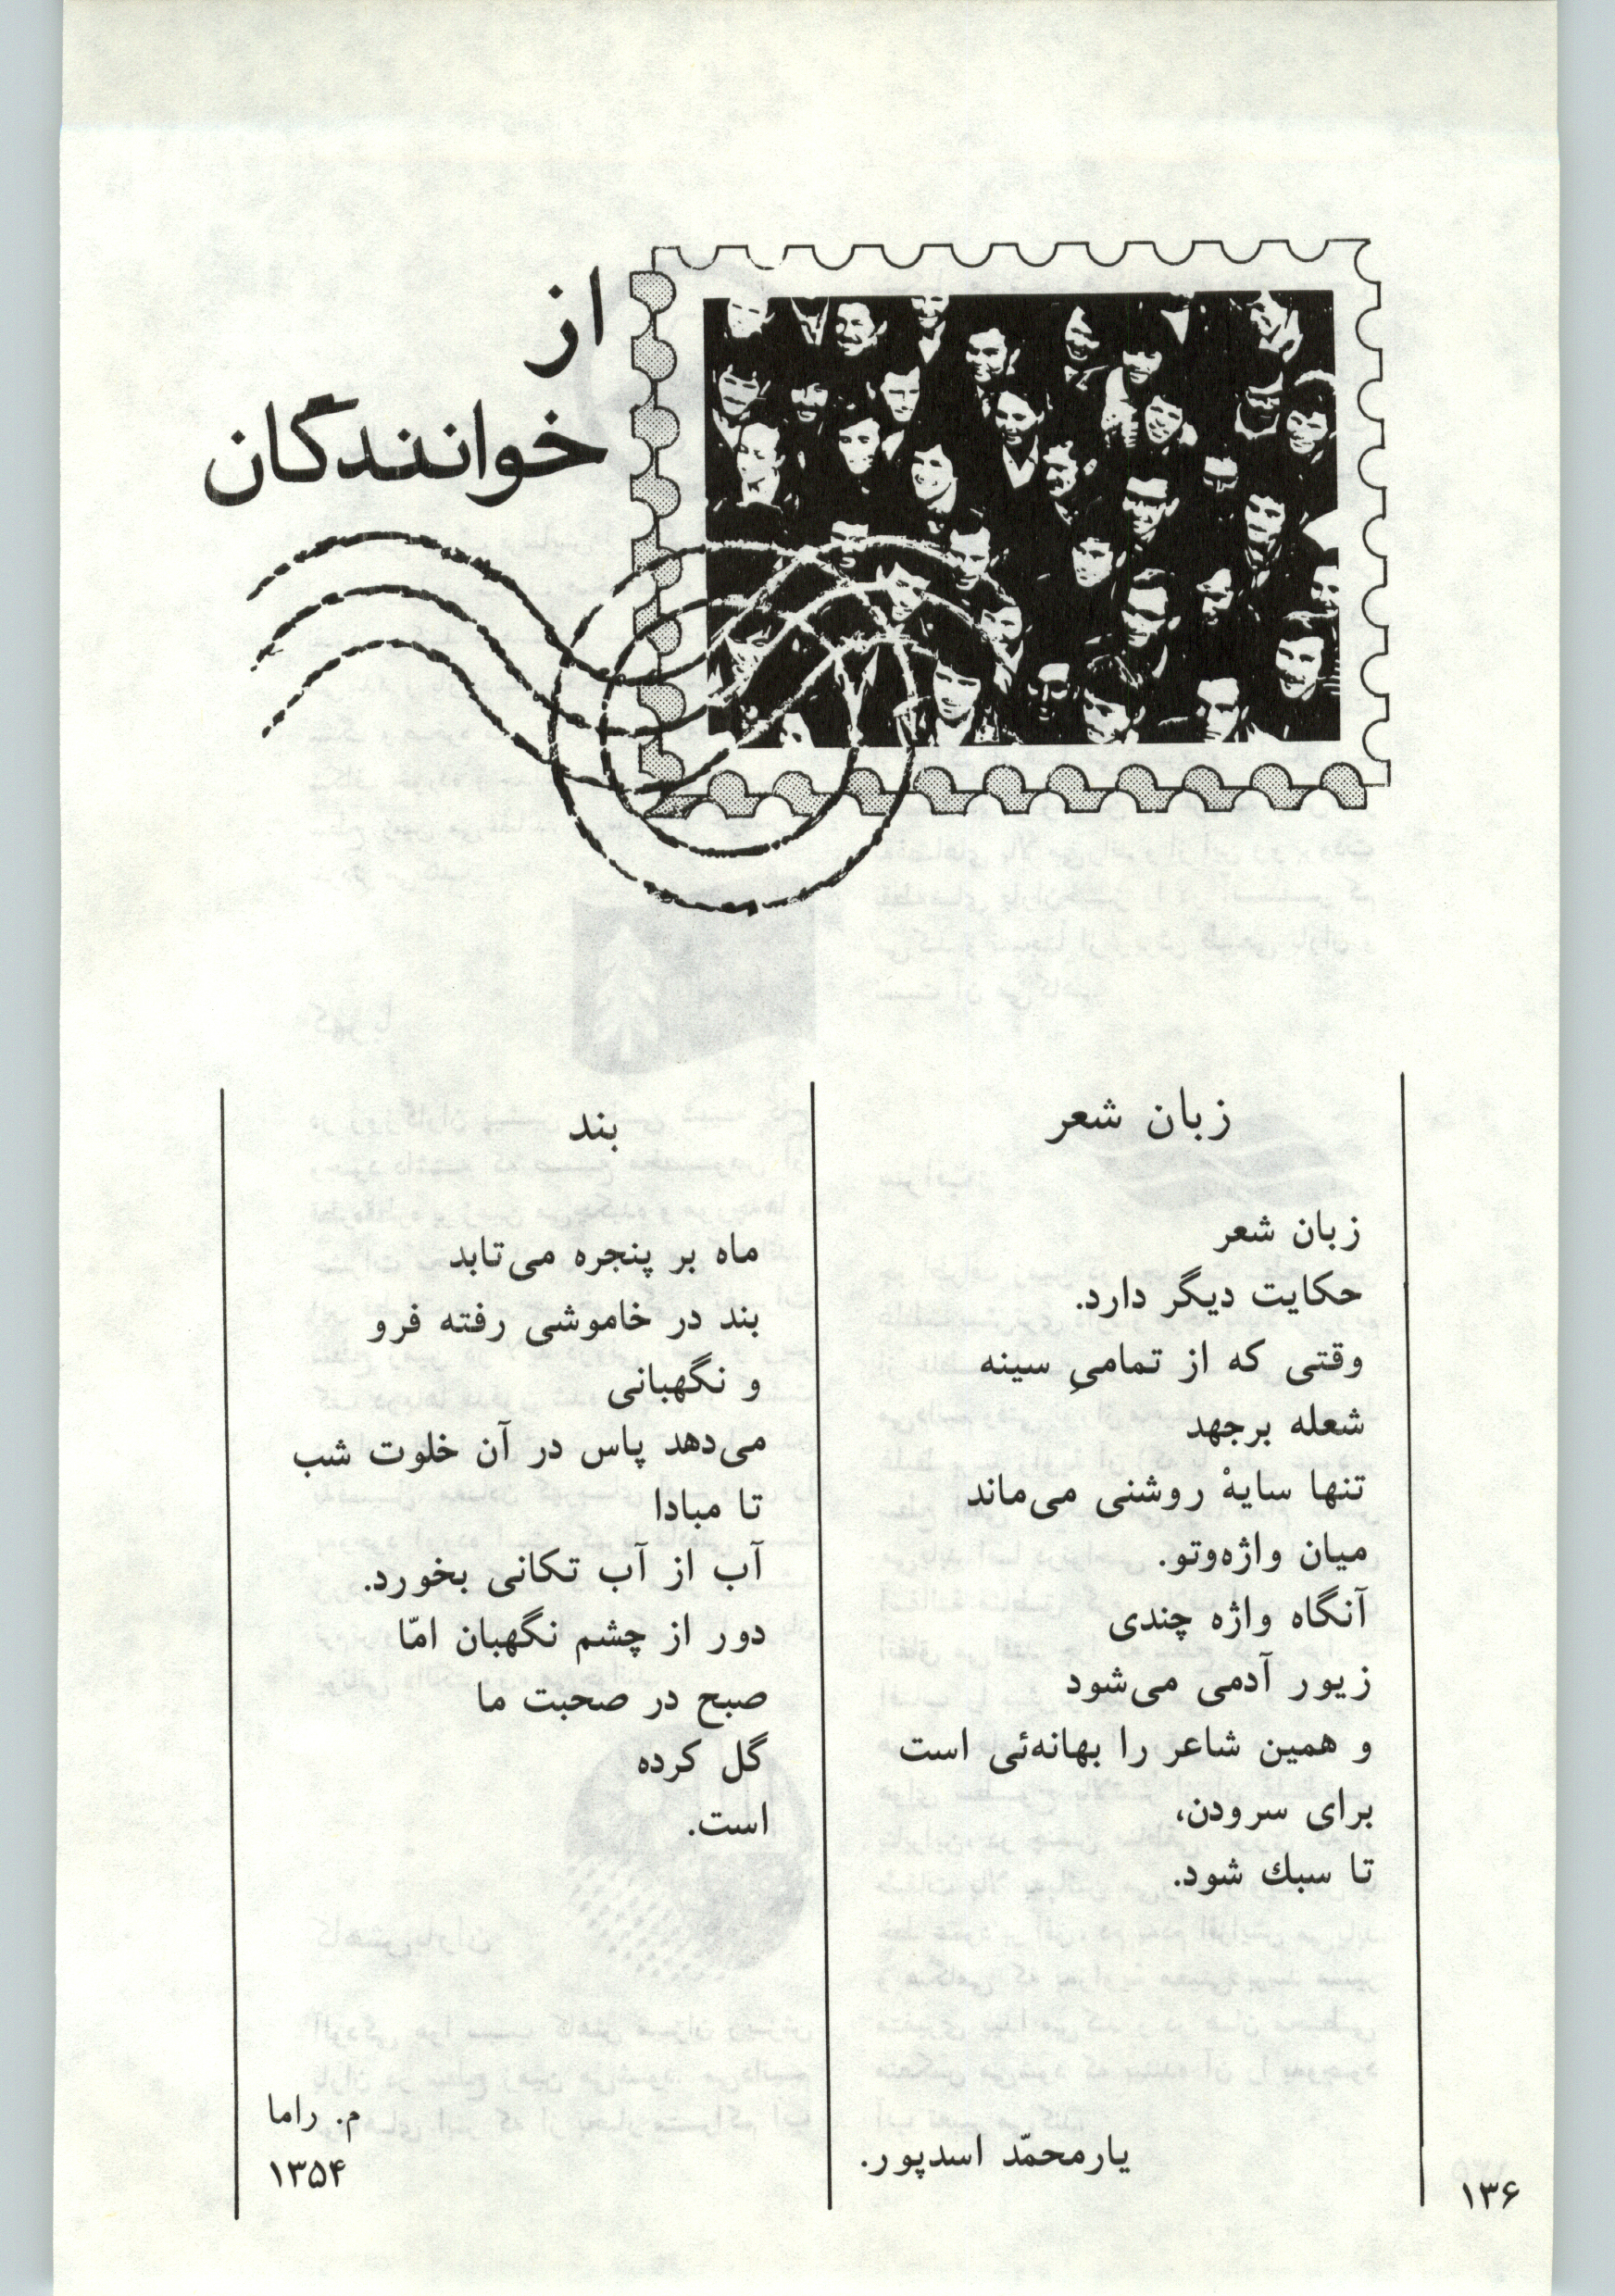 از
خوانندگان
زبان شعر
زبان شعر
حکایت دیگر دارد.
وقتی که از تمامیِ سینه
شعله برجهد
تنها سایهٔ روشنی می‌ماند
میان واژه‌وتو.
آنگاه واژه چندی
زیور آدمی می‌شود
و همین شاعر را بهانه‌ئی است
برای سرودن،
تا سبك شود.
یارمحمّد اسدپور.
بند
ماه بر پنجره می‌تابد
بند در خاموشی رفته فرو
و نگهبانی
می‌دهد پاس در آن خلوت شب
تا مبادا
آب از آب تکانی بخورد.
دور از چشم نگهبان امّا
صبح در صحبت ما
گل کرده
است.
م. راما
۱۳۵۴
۱۳۶